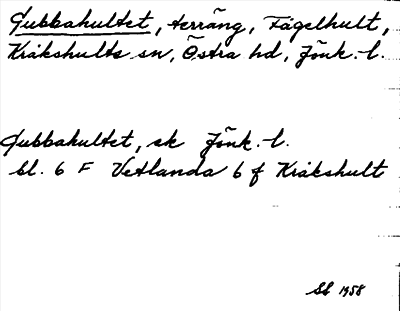 Gubbahultet, terräng, Fågelhult,
Kråkshults sn, Östra hd, Jönk.-l.
Gubbahultet, sk Jönk.-l.
bl. 6 F Vetlanda 6 f Kråkshult
SL 1958